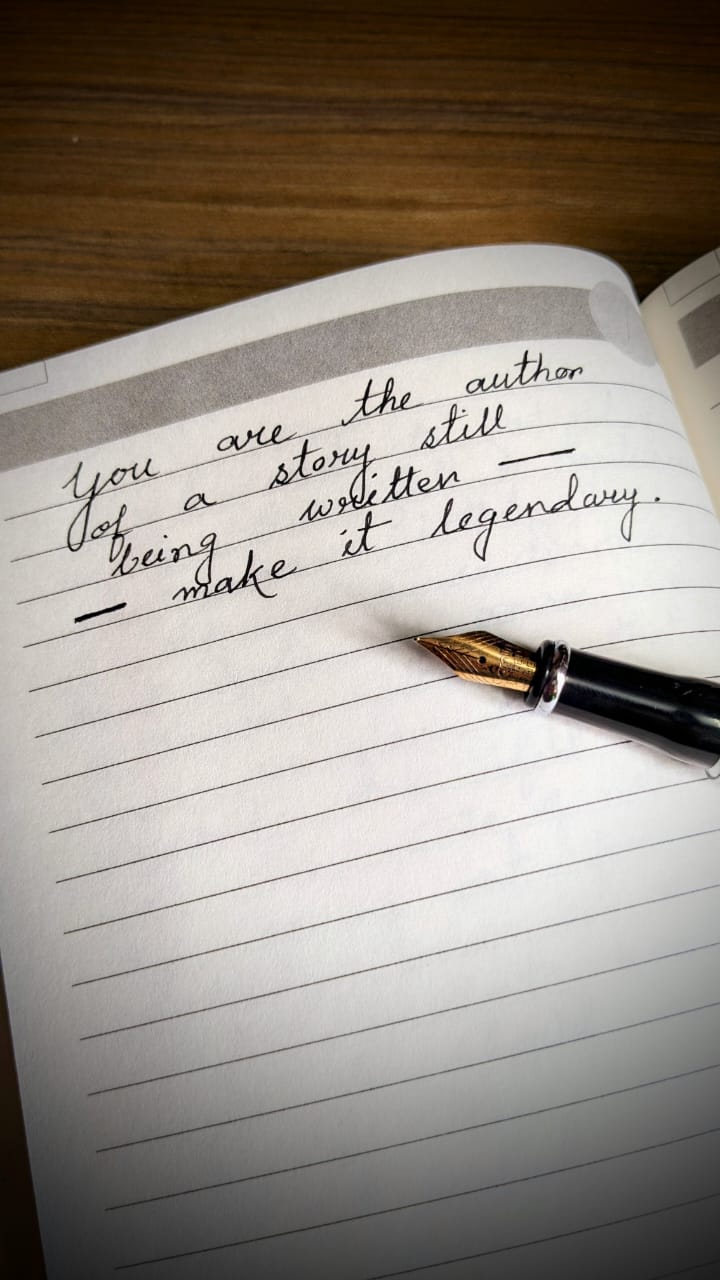 You are the author
of a story still
being written —
— make it legendary.